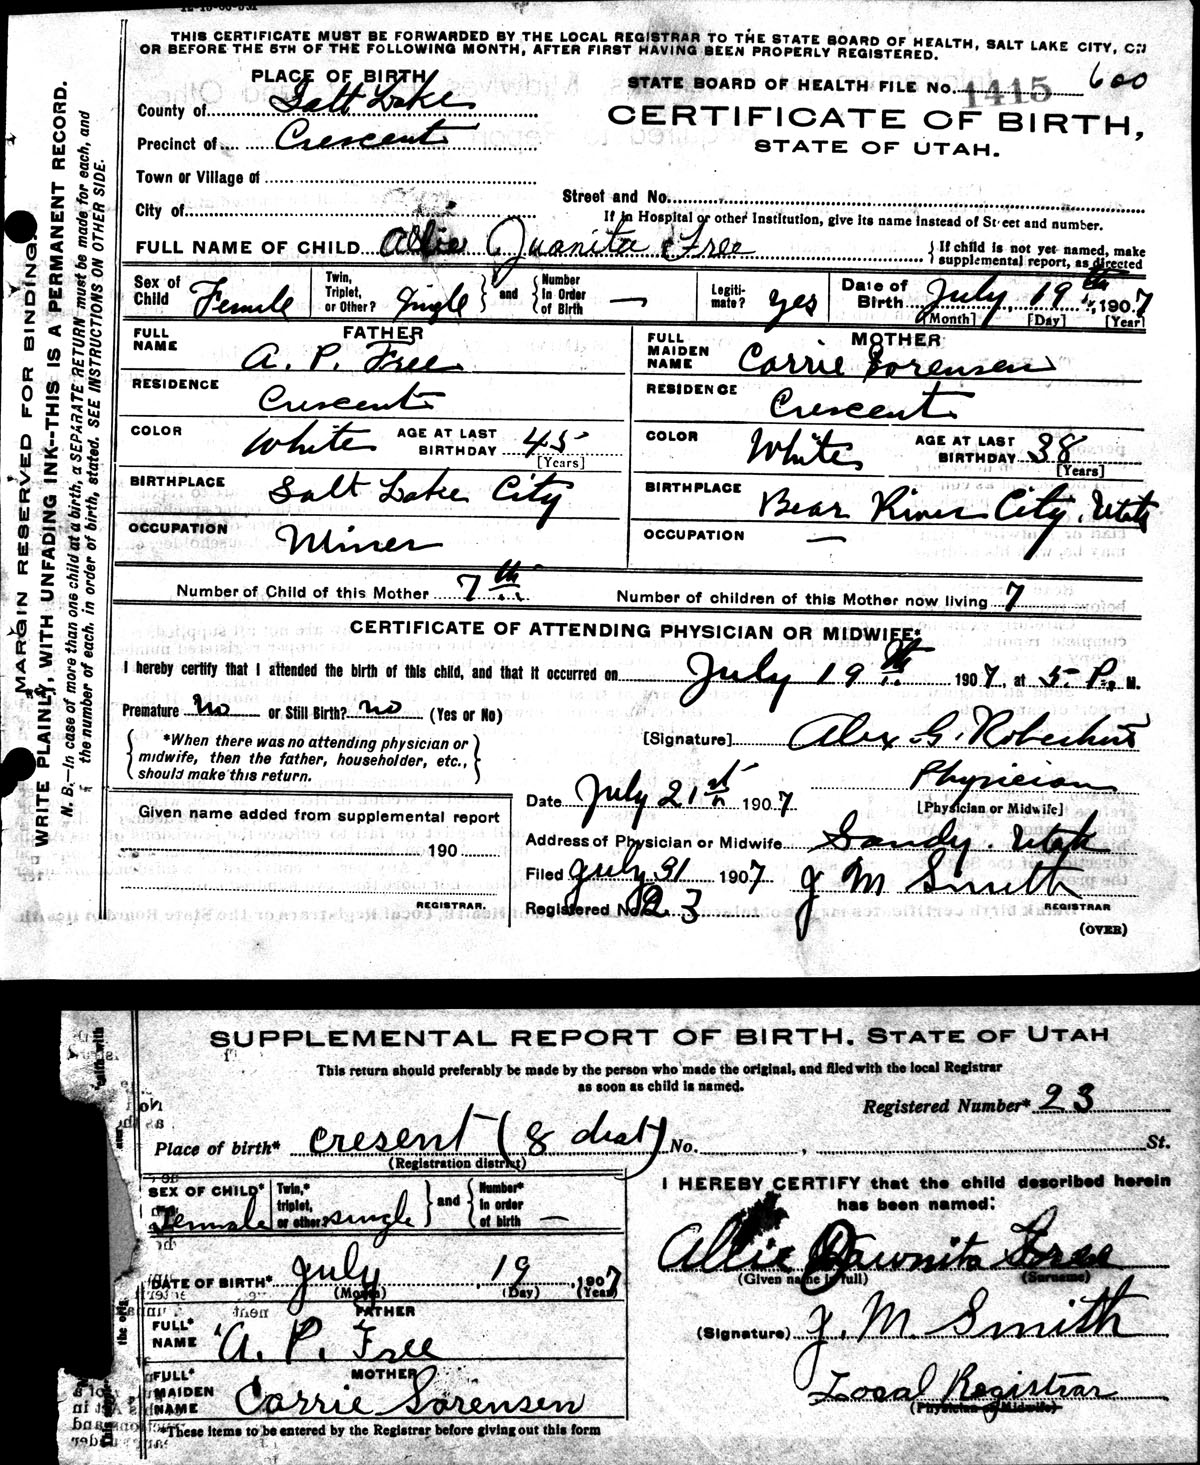 THIS CERTIFICATE MUST BE FORWARDED BY THE LOCAL REGISTRAR TO THE STATE BOARD OF HEALTH, SALT LAKE CITY,
OR BEFORE THE 5TH OF THE FOLLOWING MONTH, AFTER FIRST HAVING BEEN PROPERLY REGISTERED.
PLACE OF BIRTH
STATE BOARD OF HEALTH FILE No. 1415 600
County of Salt Lake
CERTIFICATE OF BIRTH,
Precinct of Crescent
STATE OF UTAH.
Town or Village of
Street and No.
City of
If in Hospital or other Institution, give its name instead of Street and number.
FULL NAME OF CHILD Allie Juanita Free
{ If child is not yet named, make supplemental report, as directed
Sex of Child Female
Twin, Triplet, or Other? Single } and { Number In Order of Birth —
Legitimate? yes
Date of Birth July 19th, 1907
[Month] [Day] [Year]
FATHER
FULL NAME A. P. Free
RESIDENCE Crescent
COLOR White AGE AT LAST BIRTHDAY 45
[Years]
BIRTHPLACE Salt Lake City
OCCUPATION Miner
MOTHER
FULL MAIDEN NAME Carrie Sorensen
RESIDENCE Crescent
COLOR White AGE AT LAST BIRTHDAY 38
[Years]
BIRTHPLACE Bear River City, Utah
OCCUPATION —
Number of Child of this Mother 7th
Number of children of this Mother now living 7
CERTIFICATE OF ATTENDING PHYSICIAN OR MIDWIFE*
I hereby certify that I attended the birth of this child, and that it occurred on July 19th 1907, at 5 P. M.
Premature no or Still Birth? no (Yes or No)
{ *When there was no attending physician or midwife, then the father, householder, etc., should make this return. }
[Signature] Alex G. Robertson
Physician
[Physician or Midwife]
Date July 21st 1907
Given name added from supplemental report
190
REGISTRAR.
Address of Physician or Midwife Sandy. Utah
Filed July 31 1907 J M Smith
REGISTRAR
Registered No. 23
(OVER)
MARGIN RESERVED FOR BINDING.
WRITE PLAINLY, WITH UNFADING INK--THIS IS A PERMANENT RECORD.
N. B.—In case of more than one child at a birth, a SEPARATE RETURN must be made for each, and
the number of each, in order of birth, stated. SEE INSTRUCTIONS ON OTHER SIDE.
SUPPLEMENTAL REPORT OF BIRTH. STATE OF UTAH
This return should preferably be made by the person who made the original, and filed with the local Registrar
as soon as child is named.
Registered Number* 23
Place of birth* Cresent (8 dist) No. , St.
(Registration district)
SEX OF CHILD* Female
Twin,* triplet, or other single } and { Number* In order of birth —
DATE OF BIRTH* July, 19, 1907
(Month) (Day) (Year)
FATHER
FULL* NAME A. P. Free
MOTHER
FULL* MAIDEN NAME Carrie Sorensen
*These items to be entered by the Registrar before giving out this form
I HEREBY CERTIFY that the child described herein
has been named:
Allie Juwnita Free
(Given name in full) (Surname)
(Signature) J. M. Smith
Local Registrar
(Physician or Midwife)